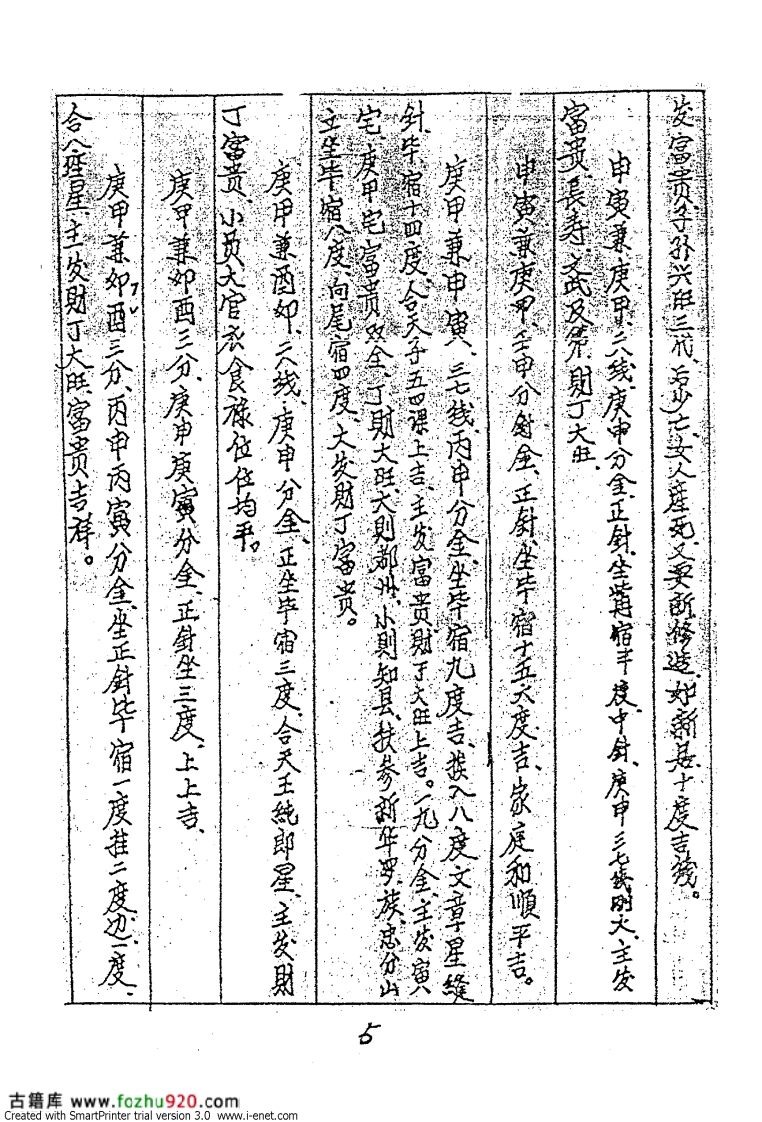 发富贵、子孙兴旺三代、后少亡、女人产死、又要所修造、如新县十度吉线。
申寅兼庚甲、二八线、庚申分金、正针、坐觜宿半度、中针、庚申三七线刚大、主发
富贵、長寿、文武及第、財丁大旺、
申寅兼庚甲、壬申分針金、正針、坐毕宿十五六度吉、家庭和順平吉。
庚甲兼申寅、三七线、丙申分金、坐毕宿九度吉、挨入八度、文章星縫
針、毕宿十四度、合天子五四課上吉、主发富贵、財丁大旺上吉。一九分金、主发寅八
宅、庚甲宅、富贵双全、丁財大旺、大則都州、小則知县、扶参新华罗族、忠分山
立坐毕宿八度、向尾宿四度、大发財丁富贵。
庚甲兼酉卯、二八线、庚申分金、正坐毕宿三度、合天王純郎星、主发財
丁富贵、小贡大官衣食禄位位均平。
庚甲兼卯酉三分、庚申庚寅分金、正針坐三度、上上吉、
庚甲兼卯酉三分、丙申丙寅分金、坐正針毕宿一度挂二度边、一度、
合八座星、主发財丁大旺、富贵吉祥。
5
古籍库 www.fozhu920.com
Created with SmartPrinter trial version 3.0 www.i-enet.com